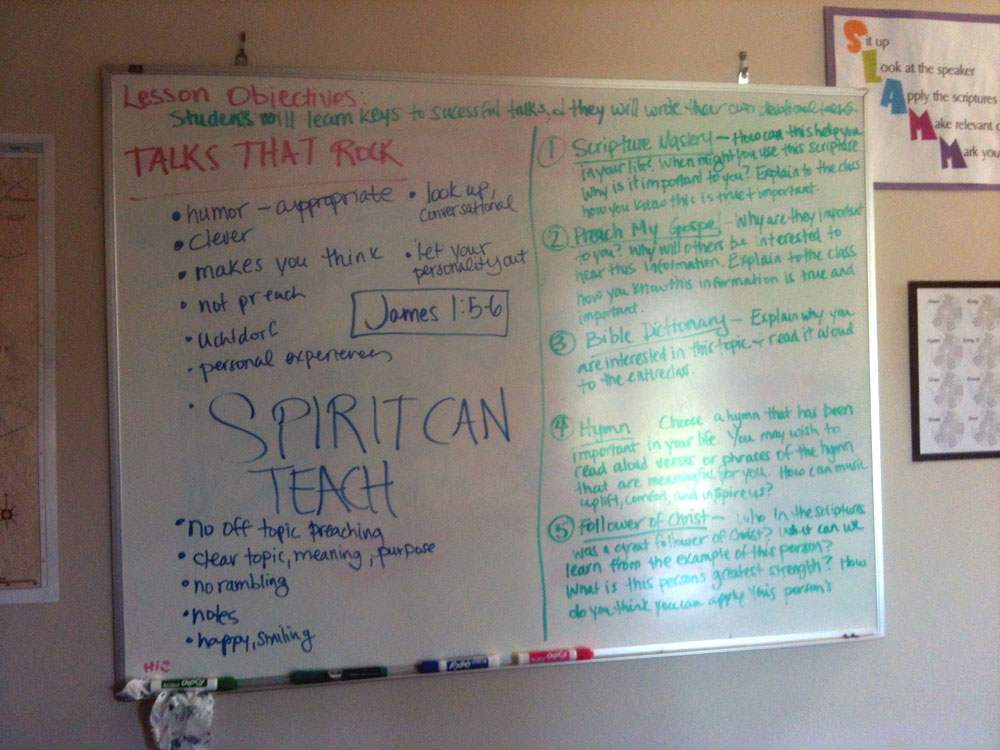 Lesson Objectives:
Students will learn keys to sucessful talks, & they will write their own devotional talks
TALKS THAT ROCK
• humor - appropriate
• Clever
• makes you think
• not preach
• Uchtdorf
• personal experiences
• look up,
conversational
• let your
personality out
James 1:5-6
• SPIRIT CAN
TEACH
• no off topic preaching
• clear topic, meaning, purpose
• no rambling
• notes
• happy, smiling
① Scripture Mastery - How can this help you
in your life? When might you use this scripture
Why is it important to you? Explain to the class
how you know this is true & important.
② Preach My Gospel - Why are they important
to you? Why will others be interested to
hear this information. Explain to the class
how you know this information is true and
important.
③ Bible Dictionary - Explain why you
are interested in this topic & read it aloud
to the entire class.
④ Hymn Choose a hymn that has been
important in your life. You may wish to
read aloud verses or phrases of the hymn
that are meaningful for you. How can music
uplift, comfort, and inspire us?
⑤ Follower of Christ - Who in the scriptures
was a great follower of Christ? What can we
learn from the example of this person?
What is this person's greatest strength? How
do you think you can apply this person's
Sit up
Look at the speaker
Apply the scriptures
Make relevant
Mark you
EXPO
EXPO
EXPO